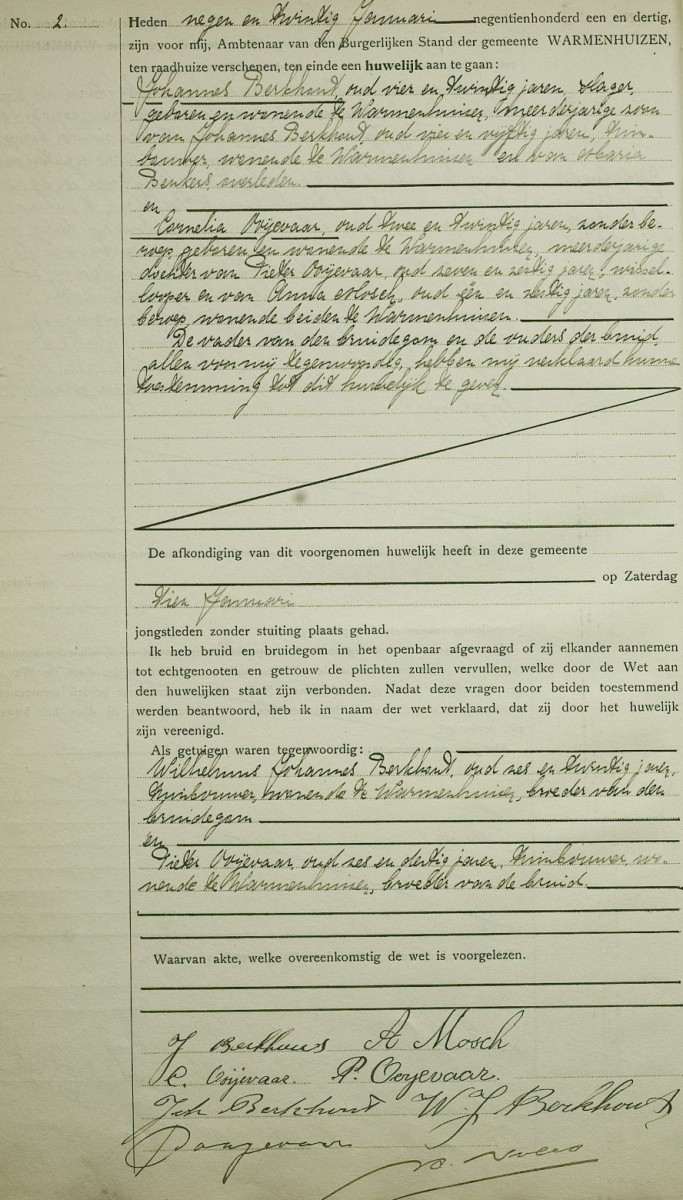 No. 2.
Heden negen en twintig Januari negentienhonderd een en dertig,
zijn voor mij, Ambtenaar van den Burgerlijken Stand der gemeente WARMENHUIZEN,
ten raadhuize verschenen, ten einde een huwelijk aan te gaan:
Johannes Berkhout, oud vier en twintig jaren, slager,
geboren en wonende te Warmenhuizen, meerderjarige zoon
van Johannes Berkhout, oud vier en vijftig jaren, tuin-
bouwer, wonende te Warmenhuizen en van Maria
Benkers, overleden.
en
Cornelia Ooijevaar, oud twee en twintig jaren, zonder be-
roep, geboren en wonende te Warmenhuizen, meerderjarige
dochter van Pieter Ooijevaar, oud zeven en zestig jaren, wissel-
looper en van Anna Mosch, oud een en zestig jaren, zonder
beroep, wonende beiden te Warmenhuizen.
De vader van den bruidegom en de ouders der bruid,
allen van mij tegenwoordig, hebben mij verklaard hunne
toestemming tot dit huwelijk te geven.
De afkondiging van dit voorgenomen huwelijk heeft in deze gemeente
op Zaterdag
tien Januari
jongstleden zonder stuiting plaats gehad.
Ik heb bruid en bruidegom in het openbaar afgevraagd of zij elkander aannemen
tot echtgenooten en getrouw de plichten zullen vervullen, welke door de Wet aan
den huwelijken staat zijn verbonden. Nadat deze vragen door beiden toestemmend
werden beantwoord, heb ik in naam der wet verklaard, dat zij door het huwelijk
zijn vereenigd.
Als getuigen waren tegenwoordig:
Wilhelmus Johannes Berkhout, oud zes en twintig jaren,
tuinbouwer, wonende te Warmenhuizen, broeder van den
bruidegom
en
Pieter Ooijevaar, oud zes en dertig jaren, tuinbouwer, wo-
nende te Warmenhuizen, broeder van de bruid
Waarvan akte, welke overeenkomstig de wet is voorgelezen.
J Berkhout A Mosch
C. Ooijevaar. P. Ooyevaar.
Joh Berkhout W. J Berkhout
P Ooijevaar